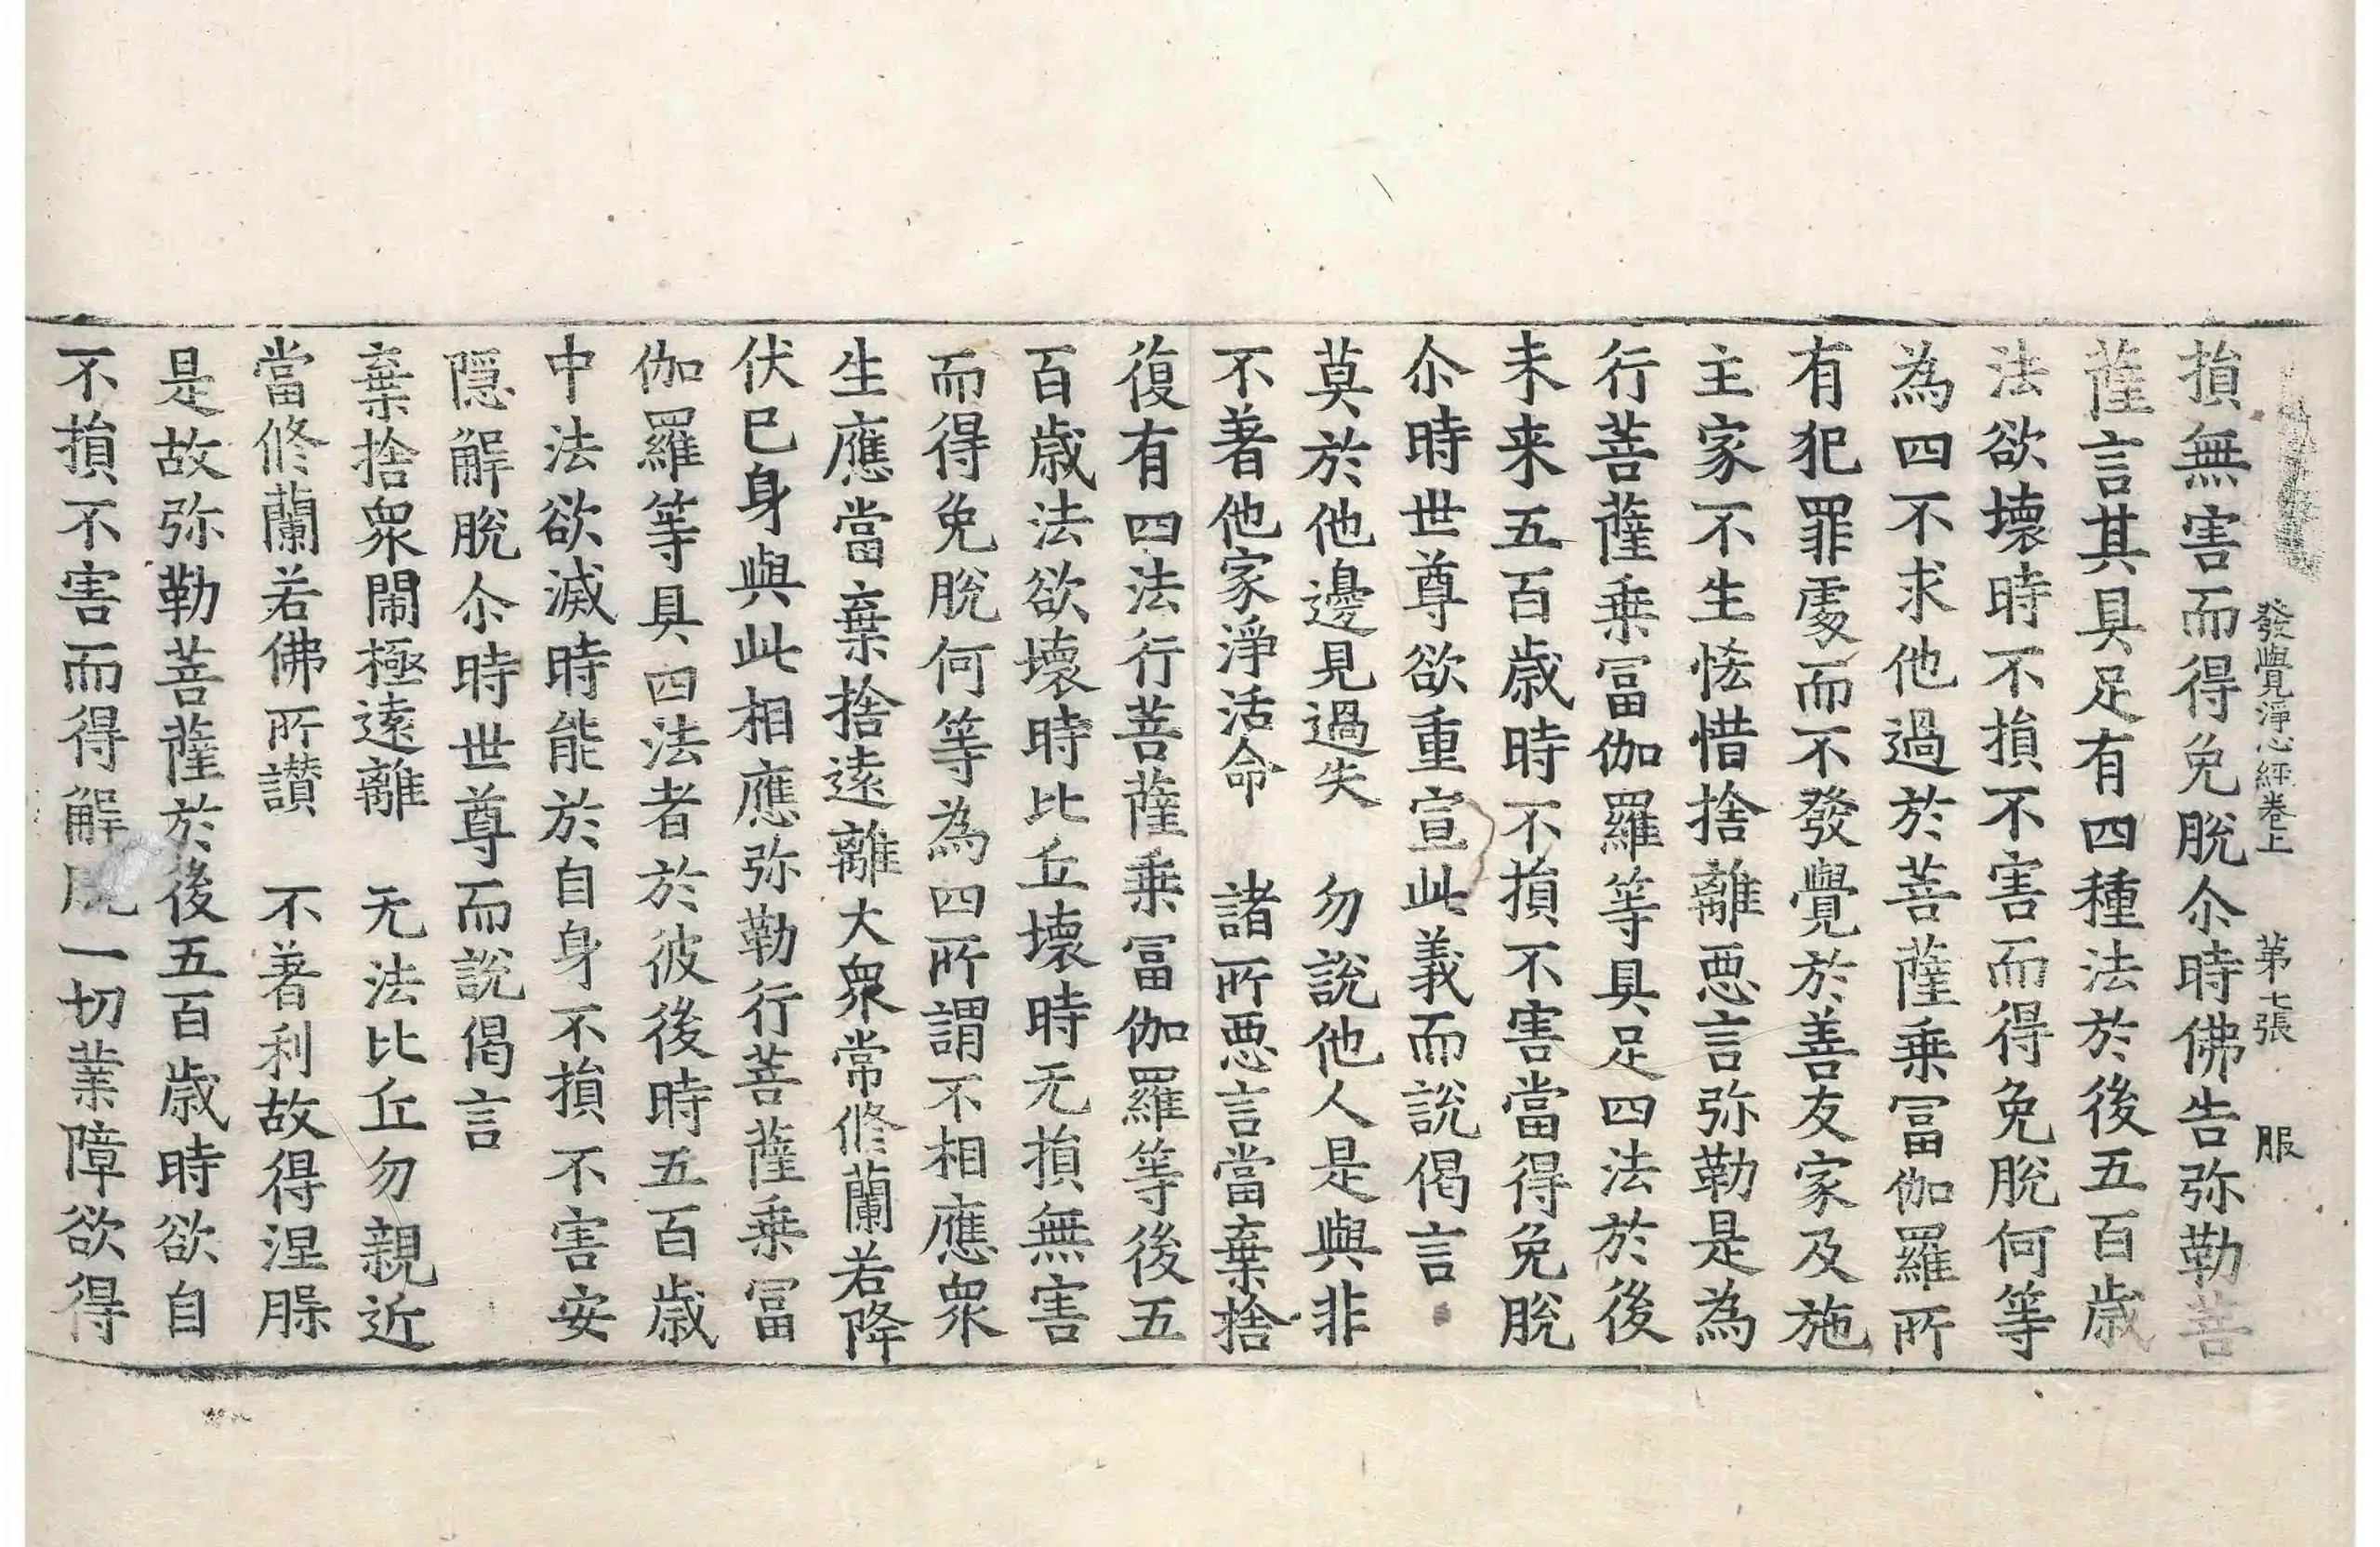 發覺淨心經卷上 第七張 服
損無害而得免脫尒時佛告弥勒菩
薩言其具足有四種法於後五百歲
法欲壞時不損不害而得免脫何等
為四不求他過於菩薩乗冨伽羅所
有犯罪䖏而不發覺於善友家及施
主家不生恡惜捨離惡言弥勒是為
行菩薩乗冨伽羅等具足四法於後
未来五百歲時不損不害當得免脫
尒時世尊欲重宣此義而說偈言
莫於他邊見過失 勿說他人是與非
不著他家淨活命 諸所惡言當棄捨
復有四法行菩薩乗冨伽羅等後五
百歲法欲壞時比丘壞時无損無害
而得免脫何等為四所謂不相應衆
生應當棄捨遠離大衆常修蘭若降
伏已身與此相應弥勒行菩薩乗冨
伽羅等具四法者於彼後時五百歲
中法欲滅時能於自身不損不害安
隱解脫尒時世尊而說偈言
棄捨衆閙極遠離 无法比丘勿親近
當修蘭若佛所讃 不著利故得涅槃
是故弥勒菩薩於後五百歲時欲自
不損不害而得解脫一切業障欲得